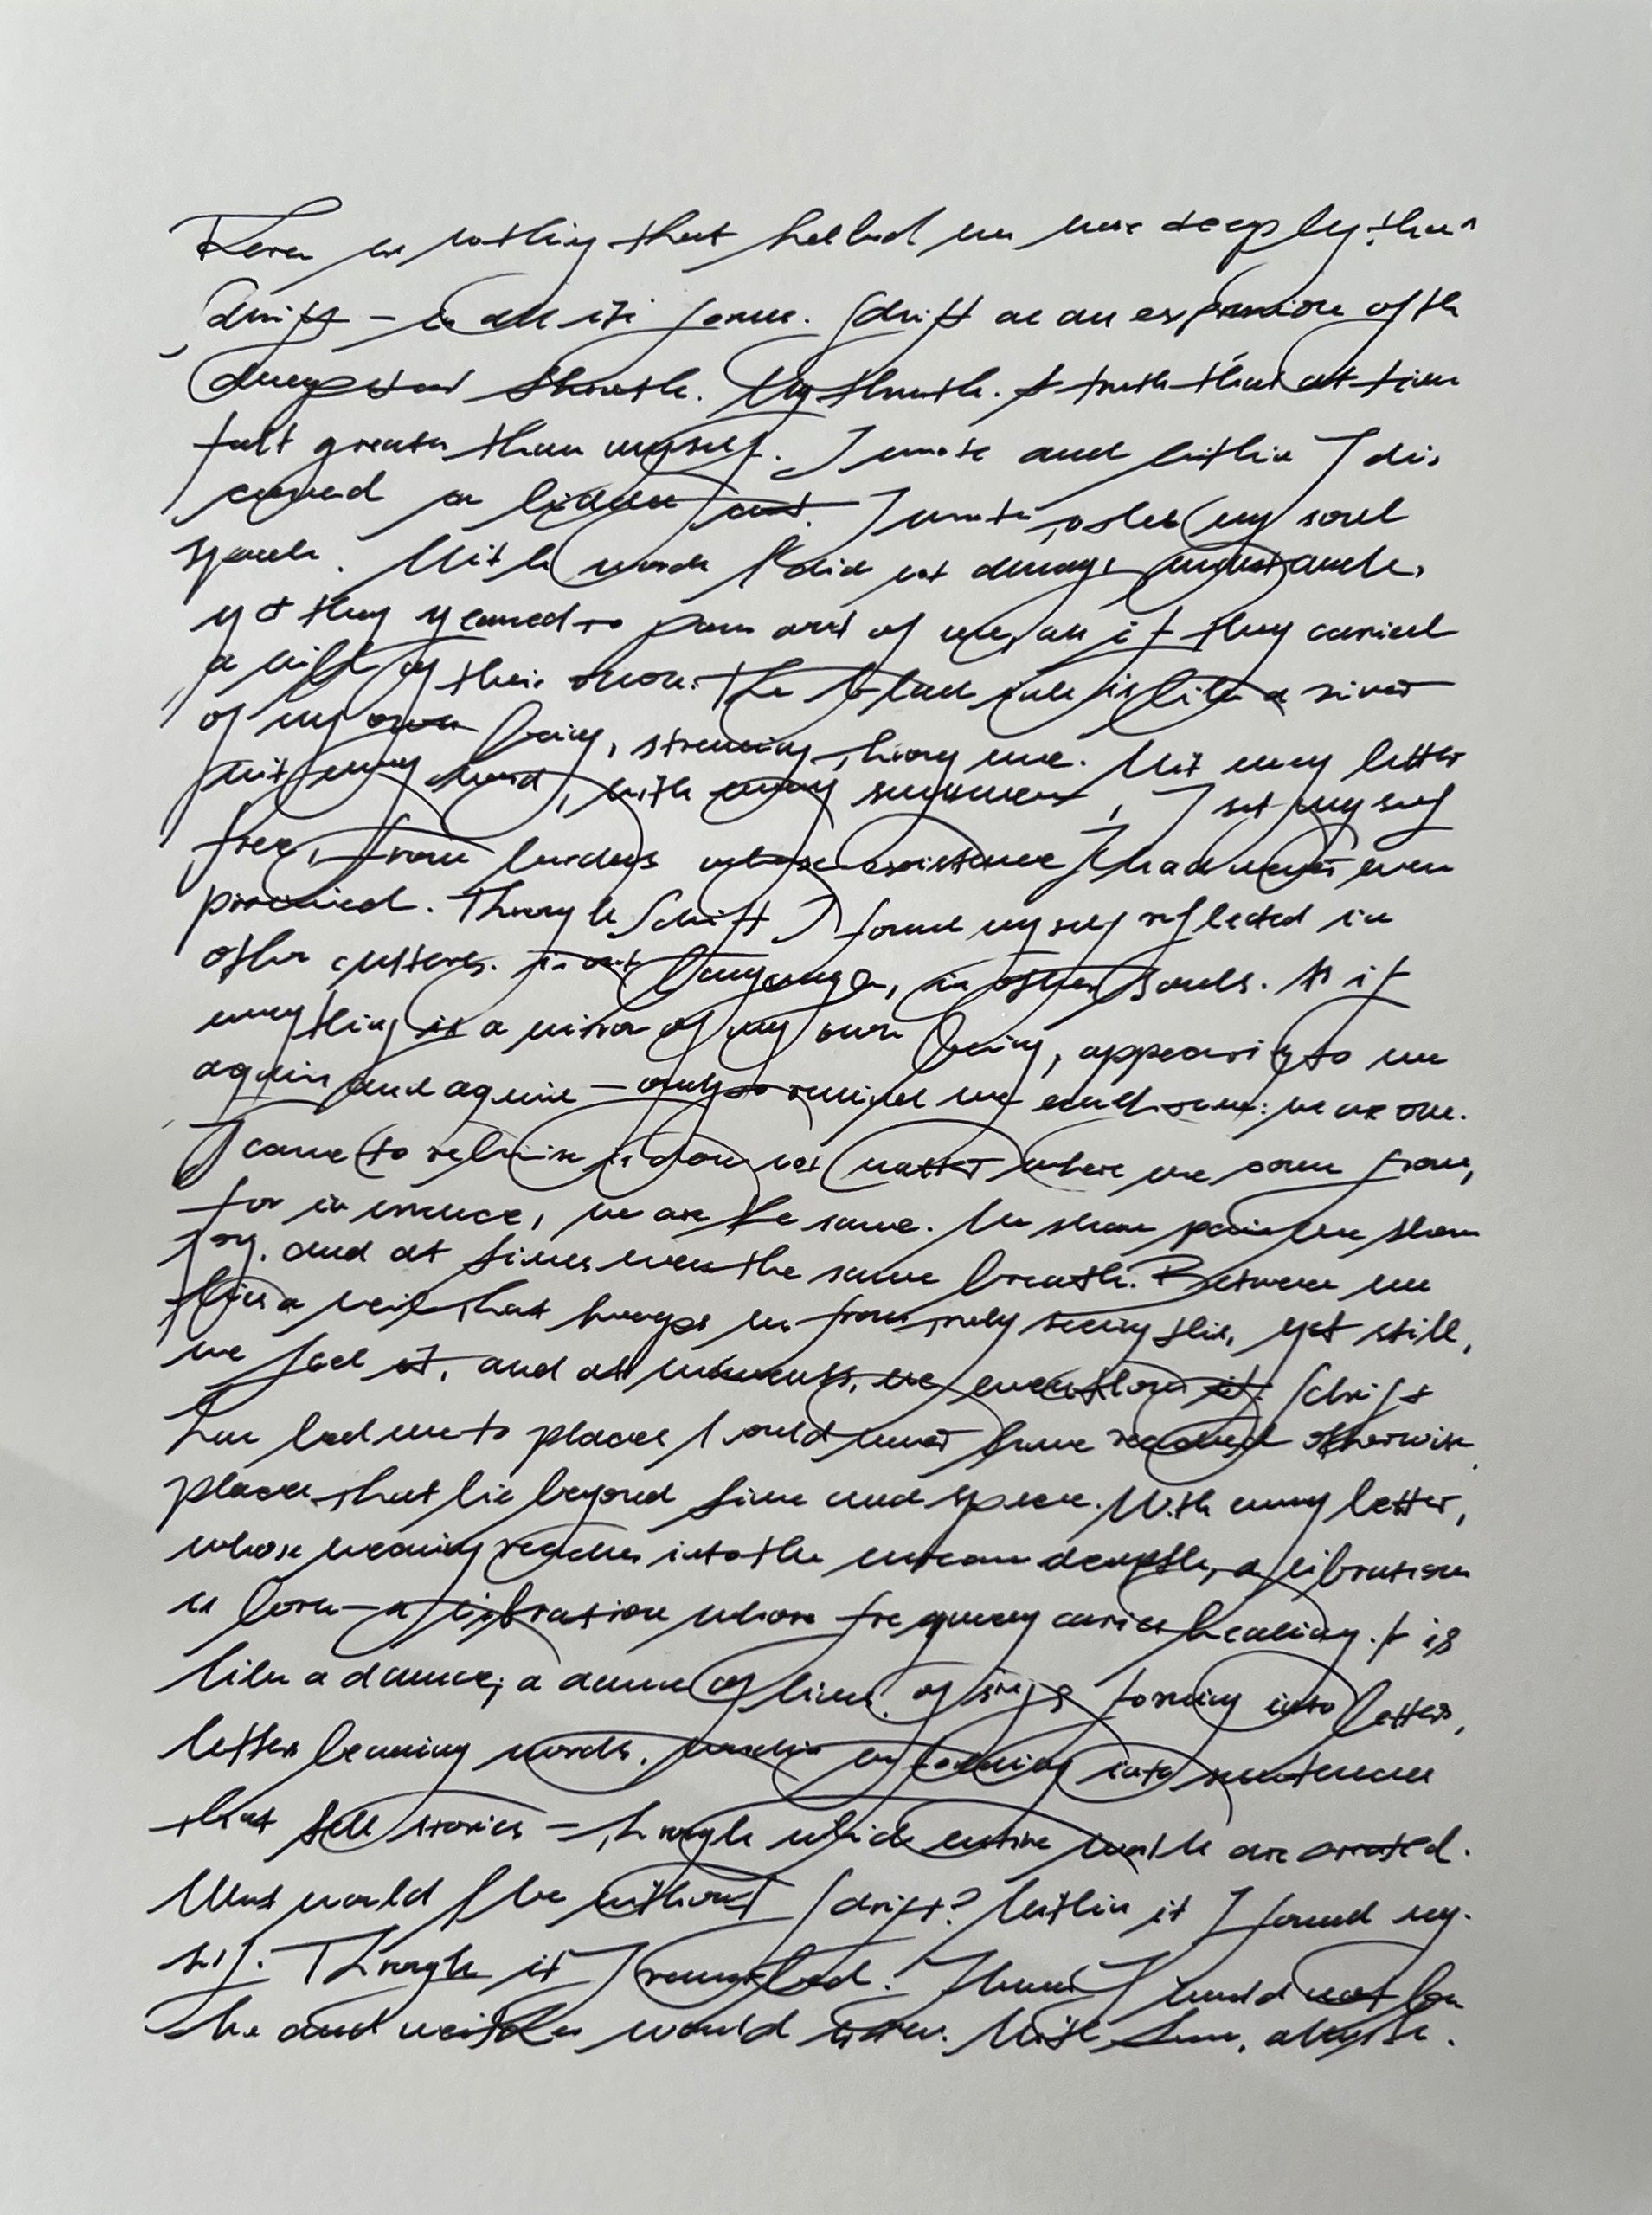 There is nothing that healed me more deeply than
Schrift – in all its forms. Schrift as an expression of the
deepest truth. My truth. A truth that at times
felt greater than myself. I wrote and within I dis
covered a hidden . I wrote, so that my soul
speaks. With words I did not always understand,
yet they yearned to pour out of me, as if they carried
a will of their own. The black ink is like a river
of my own being, streaming through me. With every letter
with every word, with every sentence, I set myself
free, from burdens whose existence I had never even
perceived. Through Schrift I found myself reflected in
other cultures. in languages, in other souls. As if
everything is a mirror of my own being, appearing to me
again and again – only to remind me each time: we are one.
I came to realise it does not matter where we come from,
for in essence, we are the same. We share pain we share
joy. and at times even the same breath. Between us
lies a veil that keeps us from truly seeing this, yet still,
we feel it, and at moments, we even know it. Schrift
has led me to places I could never have reached otherwise.
places that lie beyond time and space. With every letter,
whose meaning reaches into the unseen depths, a vibration
is born – a vibration whose frequency carries healing. It is
like a dance, a dance of lines. of signs forming into letters,
letters becoming words. words into sentences
that tell stories – through which entire worlds are created.
What would I be without Schrift? Within it I found my-
self. Through it I . I would not be
me and neither would ever. With love,